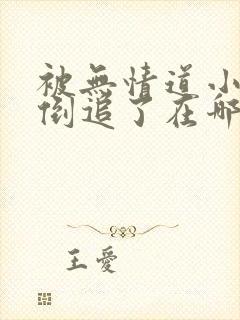 被無情道小
倒追了在哪
王愛